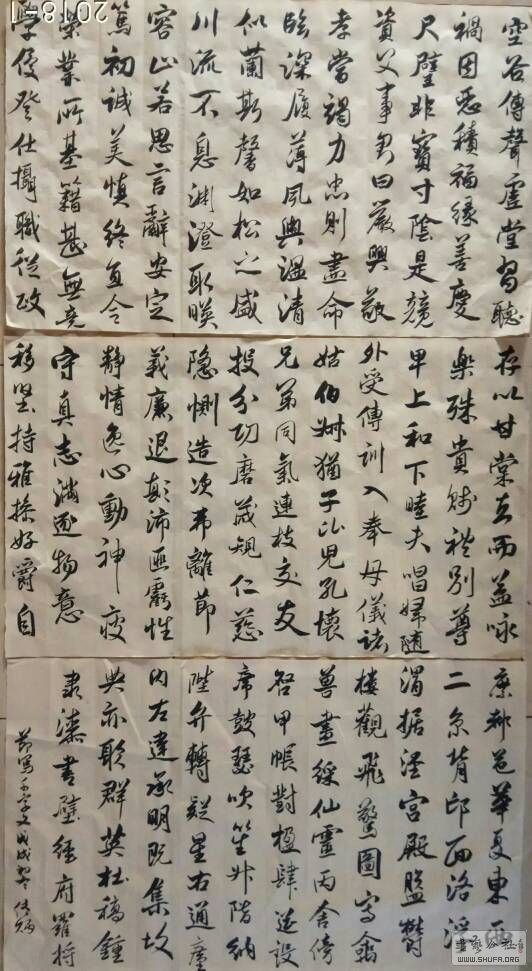 空谷傳聲虛堂習聽
禍因惡積福緣善慶
尺璧非寶寸陰是競
資父事君曰嚴與敬
孝當竭力忠則盡命
臨深履薄夙興溫凊
似蘭斯馨如松之盛
川流不息淵澄取暎
容止若思言辭安定
篤初誠美慎終宜令
榮業所基籍甚無竟
學優登仕攝職從政
存以甘棠去而益詠
樂殊貴賤禮別尊
卑上和下睦夫唱婦隨
外受傅訓入奉母儀諸
姑伯叔猶子比兒孔懷
兄弟同氣連枝交友
投分切磨箴規仁慈
隱惻造次弗離節
義廉退顛沛匪虧性
靜情逸心動神疲
守真志滿逐物意
移堅持雅操好爵自
縻都邑華夏東西
二京背邙面洛浮
渭據涇宮殿盤鬱
樓觀飛驚圖寫禽
獸畫綵仙靈丙舍傍
啟甲帳對楹肆筵設
席鼓瑟吹笙升階納
陛弁轉疑星右通廣
內左達承明既集墳
典亦聚群英杜稿鍾
隸漆書壁經府羅將
節寫千字文戊戌
2018-1
WWW.SHUFA.ORG